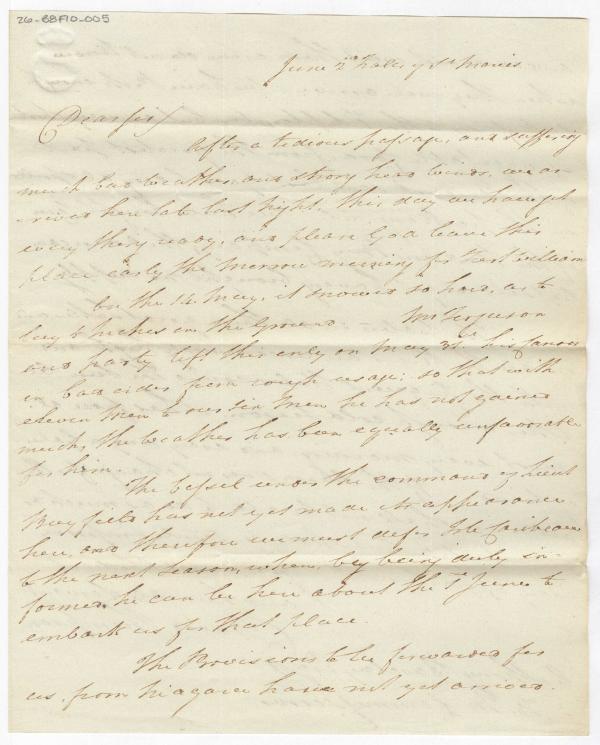 26-88F10-005
June 2nd Falls of St Maries
Dear Sir
After a tedious passage, and suffering
much bad weather and strong head winds, we ar-
-rived here late last night. this day we have got
every thing ready, and please God leave this
place early the morrow morning for Fort William
on the 14 May, it snowed so hard, as to
lay 6 Inches on the Ground Mr Ferguson
and party left this only on May 31st his Canoes
in bad order from rough usage; so that with
eleven Men to our six Men he has not gained
much, the weather has been equally unfavorable
for him.
The Vessel under the command of Lieut
Bayfield has not yet made its appearance
here, and therefore we must defer Isle Caribeau
to the next season, when, by being duly in-
formed he can be here about the 1st June to
embark us for that place.
The Provisions to be forwarded for
us from Niagara have not yet arrived.